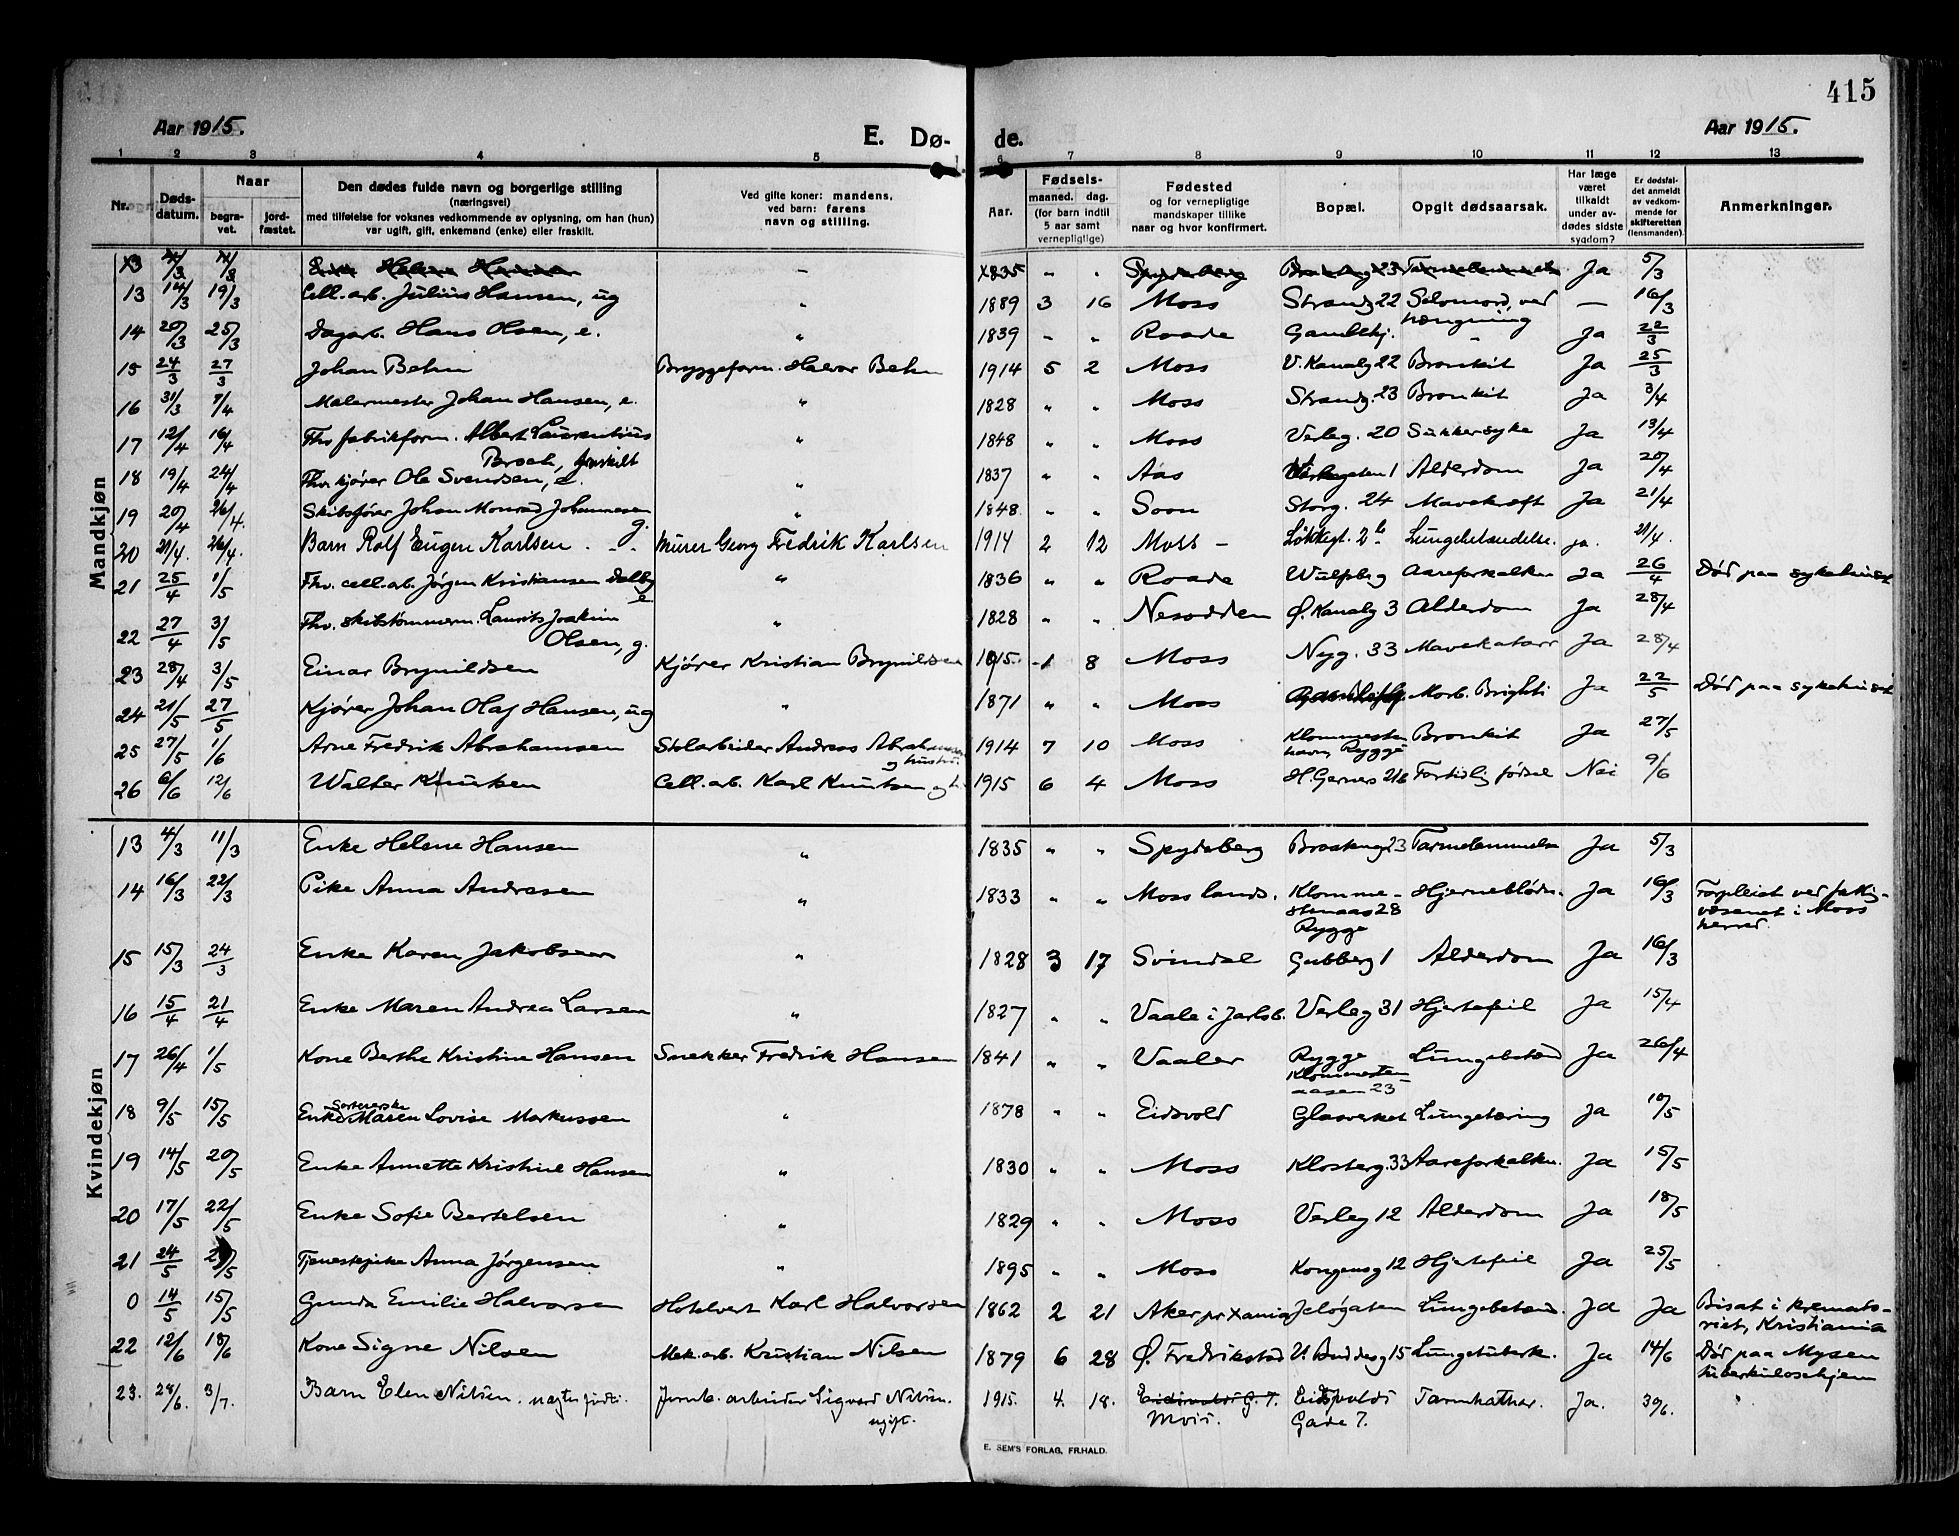 415
Aar 1915. E. Dø- de. Aar 1915.
1 2 3 4 5 6 7 8 9 10 11 12 13
Nr. Døds-datum. Naar begra-vet. jord-fæstet. Den dødes fulde navn og borgerlige stilling (næringsvei) med tilføielse for voksnes vedkommende av oplysning, om han (hun) var ugift, gift, enkemand (enke) eller fraskilt. Ved gifte koner: mandens, ved barn: farens navn og stilling. Aar. Fødsels- maaned. dag. (for barn indtil 5 aar samt vernepligtige) Fødested og for vernepligtige mandskaper tillike naar og hvor konfirmert. Bopæl. Opgit dødsaarsak. Har læge været tilkaldt under av-dødes sidste sygdom? Er dødsfal-det anmeldt av vedkom-mende for skifteretten (lensmanden). Anmerkninger.
Mandkjøn
13 4/3 4/3 Enke Helene Hansen - 1835 " " Spydeberg 23 Tarmelammelse Ja 5/3
13 14/3 19/3 Cell.arb. Julius Hansen, ug " 1889 3 16 Moss Strandg 22 Selvmord ved — 16/3
hængning
14 20/3 25/3 Dagarb. Hans Olsen, e. " 1839 - " Raade Gamlekj. - Ja 22/3
15 24/3 27/3 Johan Behn Bryggeform. Halvor Behn 1914 5 2 Moss V. Kanalg 22 Bronkit Ja 25/3
16 31/3 7/4 Malermester Johan Hansen, e. " 1828 " " Moss Strandg. 23 Bronkit Ja 3/4
17 12/4 16/4 Fhv fabrikform. Albert Laurentius " 1848 " " Moss Verleg. 20 Sukkersyke Ja 13/4
Broch, fraskilt
18 19/4 24/4 Fhv. kjører Ole Svendsen, e. " 1837 " " Aas 1 Alderdom Ja 20/4
19 20/4 26/4. Skibsfører Johan Monrad Johannesen " 1848 " " Soon Storg. 24 Mavekræft Ja 21/4
g.
20 21/4. 26/4. Barn Rolf Eugen Karlsen - - Murer Georg Fredrik Karlsen 1914 2 12 Moss - Løkkegt. 2b Lungebetændelse. ja. 21/4.
21 25/4 1/5 Fhv. cell.arb. Jørgen Kristiansen Dalby " 1836 " " Raade Wulfsberg Aareforkalkn Ja 26/4 Død paa sykehuset
e
22 27/4 3/5 Fhv. skibstømmerm. Laurits Joakim " 1828 " " Nesodden Ø. Kanalg 3 Alderdom Ja 28/4
Olsen, g.
23 28/4 3/5 Einar Brynildsen Kjører Kristian Brynildsen 1915. 1 8 Moss Nyg. 33 Mavekatarr Ja 28/4
24 21/5 27/5 Kjører Johan Olaf Hansen, ug " 1871 " " Moss Morb. Brighti Ja 22/5 Død paa sykehuset
25 27/5 1/6 Arne Fredrik Abrahamsen Stolarbeider Andreas Abrahamsen 1914 7 10 Moss Klommesten Bronkit Ja 27/5
og hustru. Rygge
26 6/6 12/6 Walter Knutsen Cell.arb. Karl Knutsen og h. 1915 6 4 Moss H. Gerners 21b Fortidlig fødsel Nei 9/6
Kvindekjøn
13 4/3 11/3 Enke Helene Hansen " 1835 " " Spydeberg 23 Tarmelammelse Ja 5/3
14 16/3 22/3 Pike Anna Andresen " 1833 " " Moss lands. Klomme- Hjerneblødn. Ja 16/3 Forpleiet ved fattig-
stenaas 28 væsenet i Moss
Rygge herred.
15 15/3 24/3 Enke Karen Jakobsen " 1828 3 17 Svindal Gubberg 1 Alderdom Ja 16/3
16 15/4 21/4 Enke Maren Andrea Larsen " 1827 " " Vaale i Jarlsb. Verleg 31 Hjertefeil Ja 15/4
17 26/4 1/5 Kone Berthe Kristine Hansen Snekker Fredrik Hansen 1841 " " Vaaler Rygge Lungebetænd Ja 26/4
Klommesten
aasen 23
18 9/5 15/5 Enke Maren Lovise Markussen " 1878 " " Eidsvold Glasverket Lungetæring Ja 10/5
19 14/5 20/5 Enke Annette Kristine Hansen " 1830 " " Moss Klosterg. 33 Aareforkalkn. Ja 15/5
20 17/5 22/5 Enke Sofie Bertelsen " 1829 " " Moss Verleg 12 Alderdom Ja 18/5
21 24/5 Tjenestepike Anna Jørgensen " 1895 " " Moss Kongensg 12 Hjertefeil Ja 25/5
0 14/5 15/5 Gunda Emilie Halvorsen Hotelvert Karl Halvorsen 1862 2 21 Aker pr Xania Jeløgaten Lungebetænd Ja Ja Bisat i kremato-
riet, Kristiania
22 12/6 18/6 Kone Signe Nilsen Mek.arb. Kristian Nilsen 1879 6 28 Ø. Fredrikstad V. Buddesg 15 Lungetuberk. Ja 14/6 Død paa Mysen
tuberkulosehjem
23. 28/6. 3/7. Barn Elen Nilsen. uegte født. Jernb. arbeider Sigvard Nilsen. 1915. 4. 18. Eidsvolds G. 7. Eidsvolds Tarmkathar. Ja. 30/6.
ugift. Moss. Gade 7.
E. SEM'S FORLAG, FR.HALD.